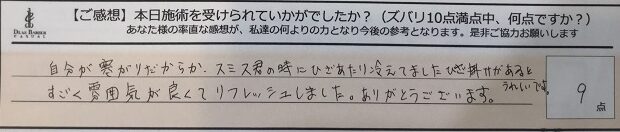 【ご感想】本日施術を受けられていかがでしたか？（ズバリ10点満点中、何点ですか？）
あなた様の率直な感想が、私達の何よりの力となり今後の参考となります。是非ご協力お願いします
DEAR BARBER
CASUAL
自分が寒がりだからか、スミス君の時にひざあたり冷えてましたひざ掛けがあると
うれしいです。
すごく雰囲気が良くてリフレッシュしました。ありがとうございます。
9
点